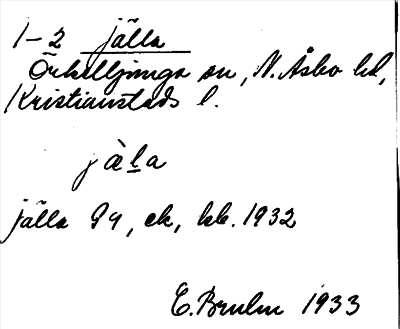 1-2 jälla
Örkelljunga sn, N. Åsbo hd,
Kristianstads l.
jàla
jälla 94, ek, kb. 1932
E. Bruhn 1933